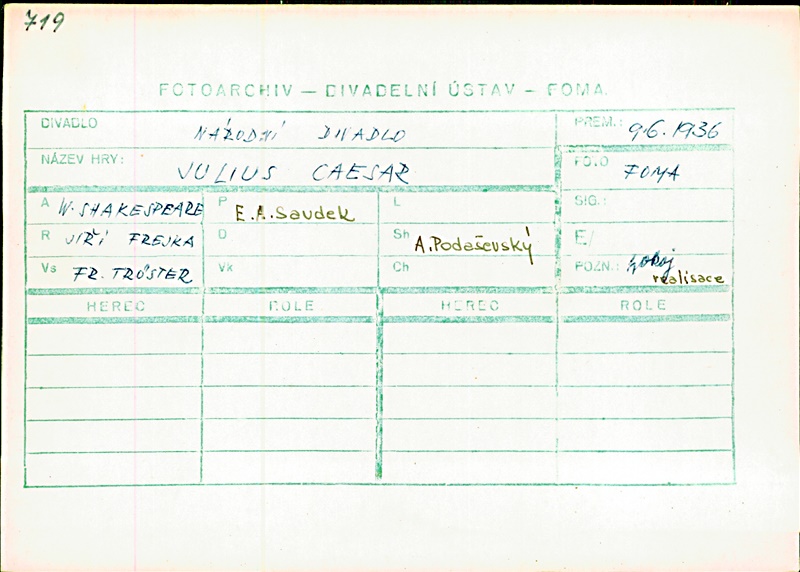 719
FOTOARCHIV — DIVADELNÍ ÚSTAV – FOMA
DIVADLO NÁRODNÍ DIVADLO PREM.: 9.6.1936
NÁZEV HRY: JULIUS CAESAR FOTO FOMA
A W. SHAKESPEARE P E.A. Saudek L SIG.:
R JIŘÍ FREJKA D Sh A. Podaševský E/
Vs FR. TRÖSTER Vk Ch POZN.:
realisace
HEREC ROLE HEREC ROLE